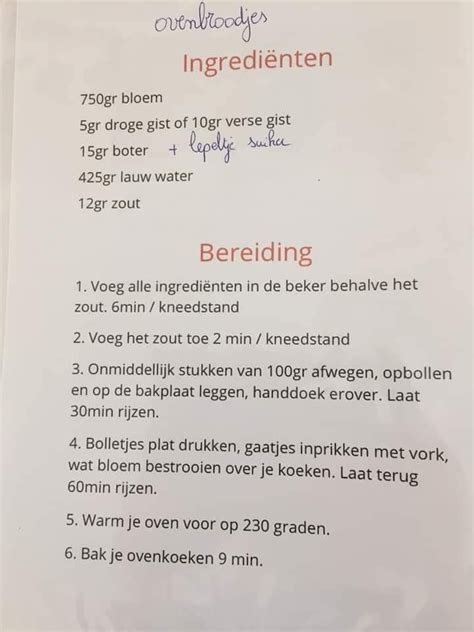 ovenbroodjes
Ingrediënten
750gr bloem
5gr droge gist of 10gr verse gist
15gr boter + lepeltje suiker
425gr lauw water
12gr zout
Bereiding
1. Voeg alle ingrediënten in de beker behalve het
zout. 6min / kneedstand
2. Voeg het zout toe 2 min / kneedstand
3. Onmiddellijk stukken van 100gr afwegen, opbollen
en op de bakplaat leggen, handdoek erover. Laat
30min rijzen.
4. Bolletjes plat drukken, gaatjes inprikken met vork,
wat bloem bestrooien over je koeken. Laat terug
60min rijzen.
5. Warm je oven voor op 230 graden.
6. Bak je ovenkoeken 9 min.